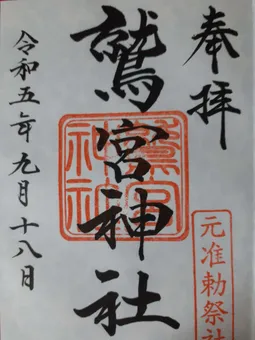 奉拝
鷲宮神社
令和五年九月十八日
鷲宮神社
元准勅祭社